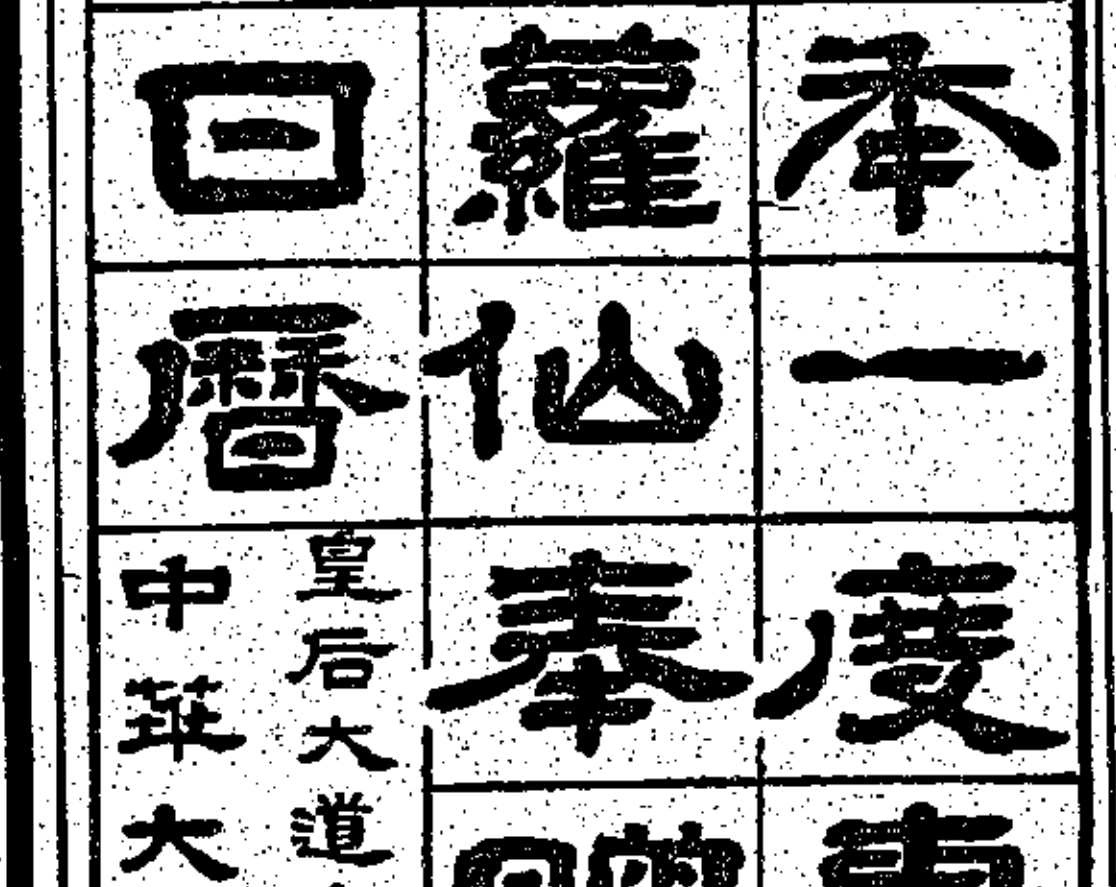 本一度
蘿仙奉
日曆
皇后大道
中華大